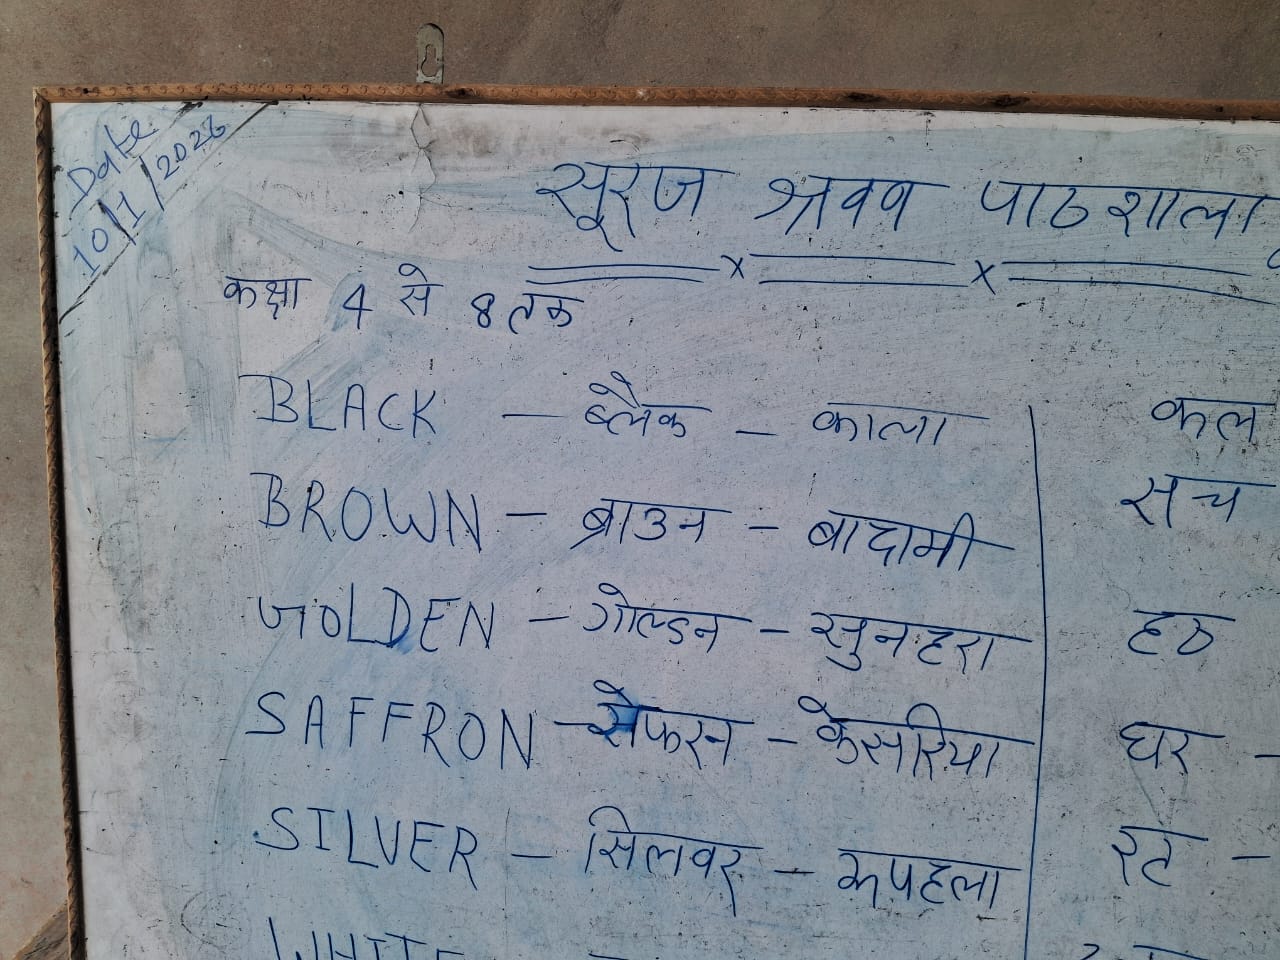 Date
10/1/2026
सूरज श्रवण पाठशाला
कक्षा 4 से 8 तक
BLACK – ब्लैक – काला
BROWN – ब्राउन – बादामी
GOLDEN – गोल्डन – सुनहरा
SAFFRON – सेफरन – केसरिया
SILVER – सिलवर – रूपहला
WHITE
कल
सच
हठ
घर –
रट –